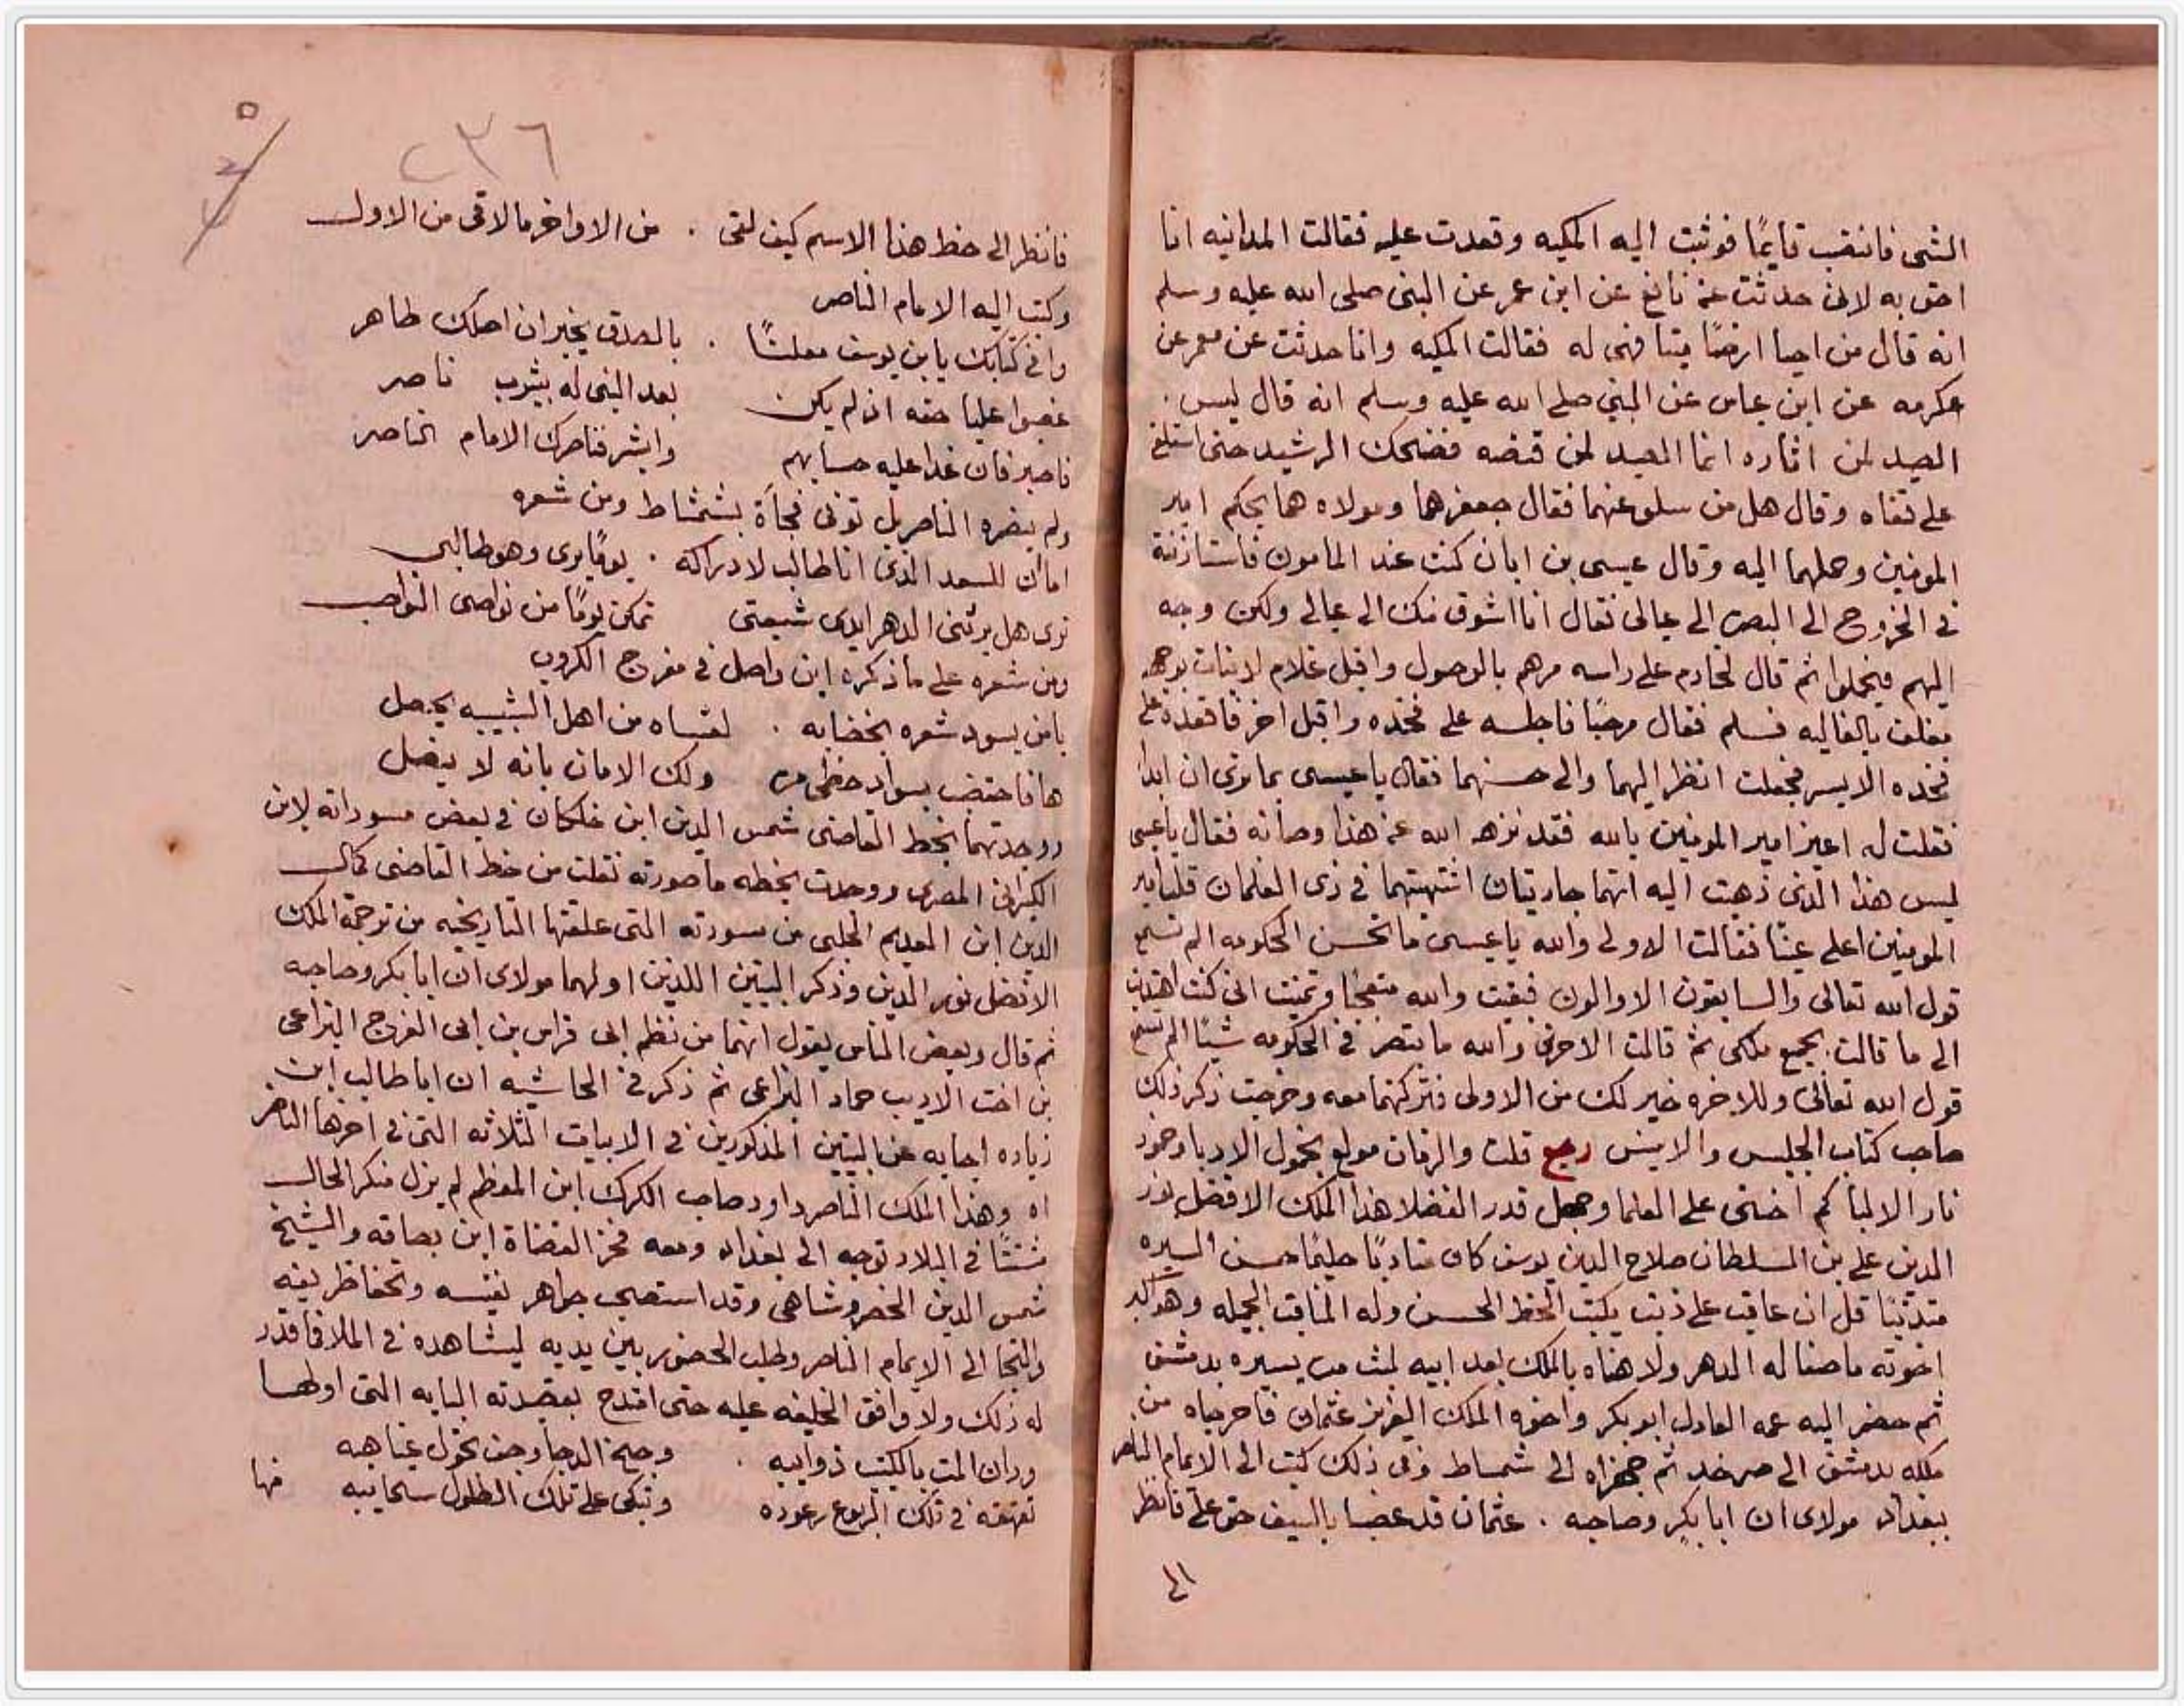 الشى فانتصب قايمًا فوثبت اليه المكيه وقعدت عليه فقالت المدانيه انا
احق به لانى حدثت عن نافع عن ابن عمر عن النبى صلى الله عليه وسلم
انه قال من احيا ارضًا ميتا فهى له فقالت المكيه وانا حدثت عن معمر عن
عكرمه عن ابن عباس عن النبي صلى الله عليه وسلم انه قال ليس
الصيد لمن اثاره انما الصيد لمن قنصه فضحك الرشيد حتى استلقى
على قفاه وقال هل من سلو عنهما فقال جعفر هما ومولاه هما بحكم امير
المومنين وحملهما اليه وقال عيسى بن ابان كنت عند المامون فاستاذنته
في الخروج الى البصره الى عيالى فقال انا اشوق منك الى عيالى ولكن وجه
اليهم فيحملوا ثم قال لخادم على راسه مرهم بالوصول واقبل غلام
مغلف بالغاليه فسلم فقال مرحبًا فاجلسه على فخذه واقبل اخر فاقعده على
فخذه الايسر فجعلت انظر اليهما والى حسنهما فقال يا عيسى بما ترى ان ابدا
فقلت له اعيذ امير المومنين بالله فقد نزهه الله عن هذا وصانه فقال يا عيسى
ليس هذا الذى ذهبت اليه انهما جاريتان اشتهيتهما في زى الغلمان قلت امير
المومنين اعلى عينًا فقالت الاولى والله يا عيسى ما تحسن الحكومه الم تسمع
قول الله تعالى والسابقون الاوالون فبقيت والله متعجبًا وتمنيت انى كنت اهتديت
الى ما قالت بجميع ملكى ثم قالت الاخرى والله ما تبصر في الحكومه شيًا الم تسمع
قول الله تعالى وللاخره خير لك من الاولى فتركتهما معه وخرجت ذكر ذلك
صاحب كتاب الجليس والانيس رجع قلت والزمان مولع بخمول الادبا وخمود
نار الالبا كم اخنى على العلما وجهل قدر الفضلا هذا الملك الافضل نور
الدين على بن السلطان صلاح الدين يوسف كان متادبًا حليمًا حسن السيره
متدينًا قل ان عاقب على ذنب يكتب الخط الحسن وله المناقب الجميله وهو اكبر
اخوته ما صفا له الدهر ولا هناه بالملك بعد ابيه لبث مده يسيره بدمشق
ثم حضر اليه عمه العادل ابو بكر واخوه الملك العزيز عثمان فاخرجاه من
ملكه بدمشق الى صرخد ثم جهزاه الى شمساط وفى ذلك كتب الى الامام الناصر
ببغداد مولاى ان ابا بكر وصاحبه . عثمان قد غصبا بالسيف حق على فانظر
الى
٢٣٦
فانظر الى حظ هذا الاسم كيف لقى . من الاواخر ما لاقى من الاول
وكتب اليه الامام الناصر
وافى كتابك يا بن يوسف معلنًا . بالصدق يخبر ان اصلك طاهر
غصبوا عليا حقه اذ لم يكن بعد النبى له بيثرب ناصر
فاصبر فان غدا عليه حسابهم وابشر فناصرك الامام الناصر
ولم ينصره الناصر بل توفى فجاة بشمشاط ومن شعره
اما ان للسعد الذى انا طالب لادراكه . يومًا يرى وهو طالبى
ترى هل يرينى الدهر ايدى شيعتى تمكن يومًا من نواصى النواصب
ومن شعره على ما ذكره ابن واصل في مفرج الكروب
يا من يسود شعره بخضابه . لعساه من اهل الشبيبه يحصل
ها فاختضب بسواد حظى مره ولك الامان بانه لا ينصل
ووجدتهما بخط القاضى شمس الدين ابن خلكان في بعض مسوداته لابن
الكيزانى المصرى ووجدت بخطه ما صورته نقلت من خط القاضى كمال
الدين ابن العديم الحلبى من مسودته التى علقها التاريخيه من ترجمة الملك
الافضل نور الدين وذكر البيتين اللذين اولهما مولاى ان ابا بكر وصاحبه
ثم قال وبعض الناس يقول انهما من نظم ابى فراس بن ابى الفرج البزاعى
بن اخت الاديب حماد البزاعى ثم ذكر في الحاشيه ان ابا طالب ابن
زياده اجابه عن البيتين المذكورين في الابيات الثلاثه التى في اخرها الناصر
اه وهذا الملك الناصر داود صاحب الكرك ابن المعظم لم يزل منكر الحال
مشتتًا في البلاد توجه الى بغداد ومعه فخر القضاة ابن بصاقه والشيخ
شمس الدين الخسروشاهى وقد استصحب جواهر نفيسه وتحفا ظريفه
والتجا الى الامام الناصر وطلب الحضور بين يديه ليشاهده في الملا فما قدر
له ذلك ولا وافق الخليفه عليه حتى امتدح بقصيدته البايه التى اولها
ودان المت بالكثيب ذوايبه . وجنح الدجا وحف تجول غياهبه
تقهقه في تلك الربوع رعوده وتبكى على تلك الطلول سحايبه منها